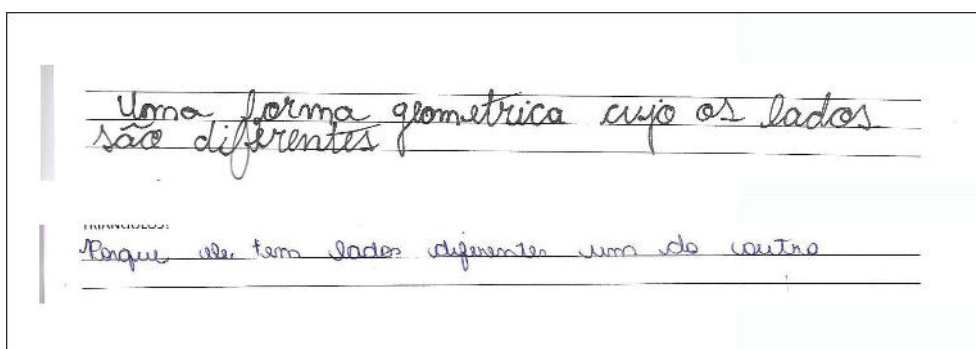 Uma forma geometrica cujo os lados
são diferentes
TRIANGULOS:
Porque ele tem lados diferentes um do outro